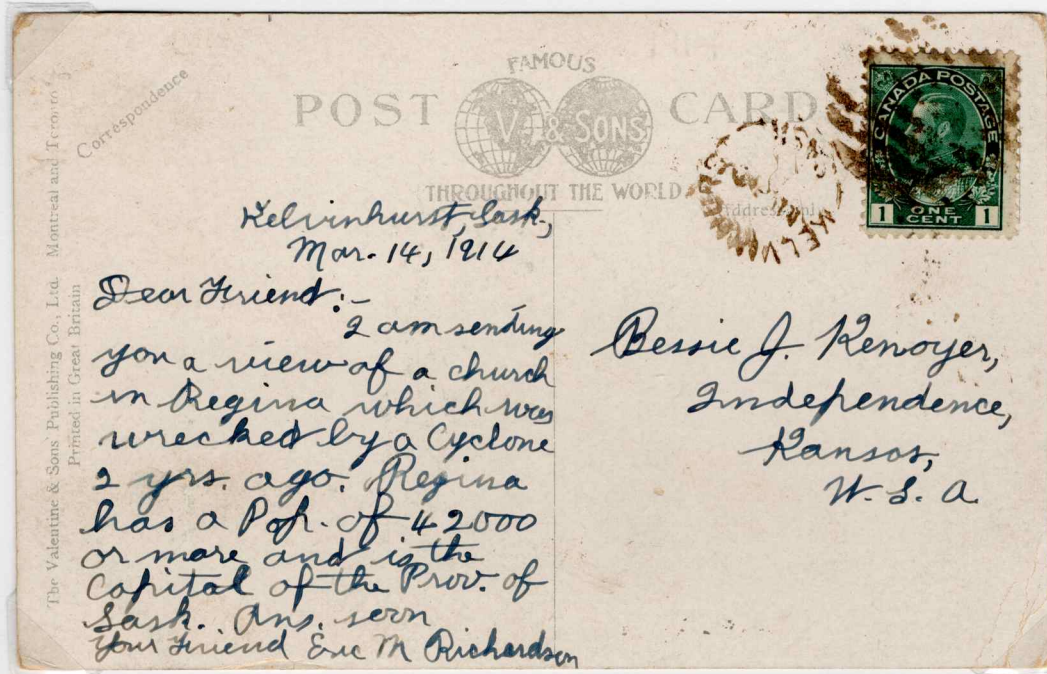 FAMOUS
POST CARD
V. & SONS
THROUGHOUT THE WORLD
Correspondence
Address only
The Valentine & Sons Publishing Co., Ltd. Montreal and Toronto
Printed in Great Britain
CANADA POSTAGE
1 ONE CENT 1
Kelvinhurst, Sask.,
Mar. 14, 1914
Dear Friend:-
I am sending
you a view of a church
in Regina which was
wrecked by a Cyclone
2 yrs. ago. Regina
has a Pop. of 42000
or more and is the
Capital of the Prov. of
Sask. Ans. soon
Your Friend Eric M Richardson
Bessie J. Kenoyer,
Independence,
Kansas,
U. S. A.